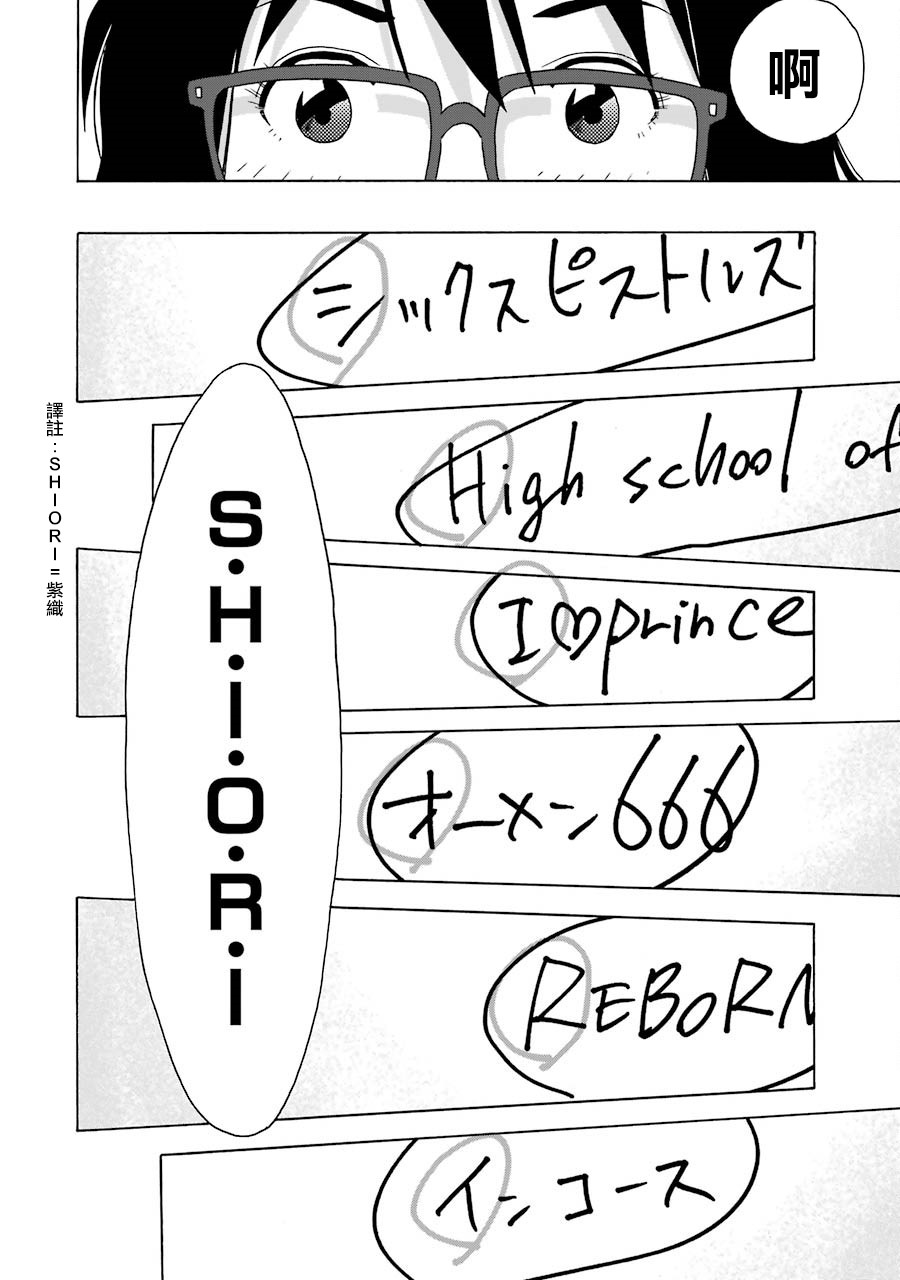 啊
シックスピストルズ
High school of
I♡prince
オーメン666
REBORN
インコース
S・H・I・O・R・I
譯註：SHIORI=紫織